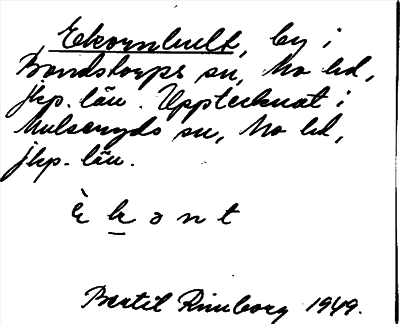 Ekornhult, by i
Bondstorps sn, Mo hd,
Jkp. län. Upptecknat i
Hulseryds sn, Mo hd,
Jkp. län.
È k ə n t
Bertil Rimborg 1949.